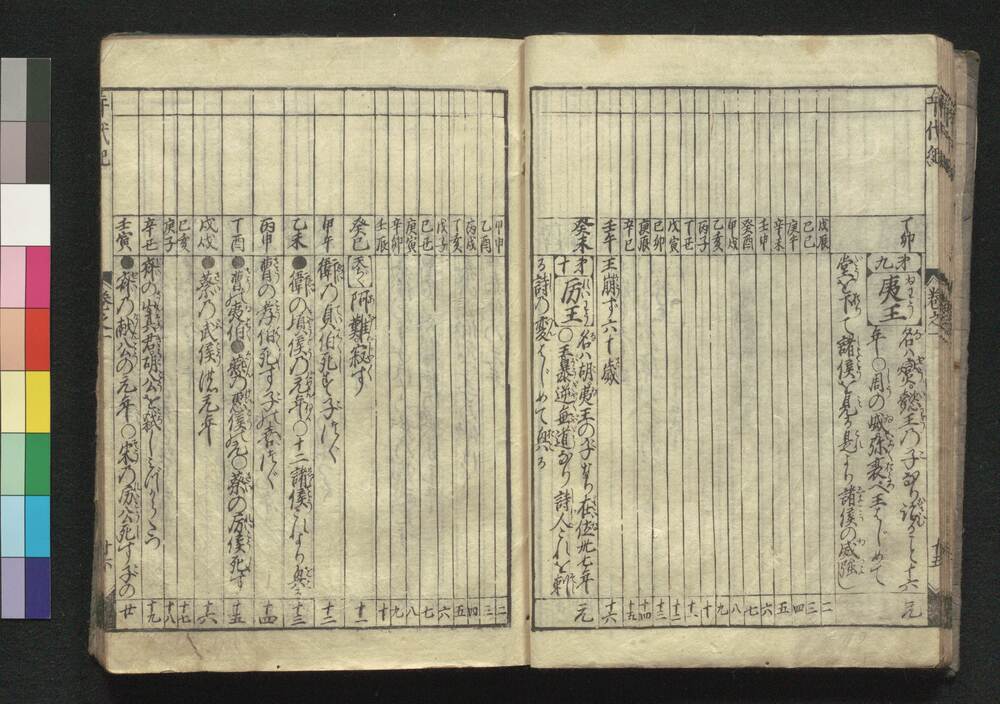 年代紀
丁卯
才九
夷王
名ハ燮懿王の子なり治こと十六元
年〇周の威弥衰へ王はじめて
堂を下て諸侯を見る是より諸侯の威強し
戊辰 二
己巳 三
庚午 四
辛未 五
壬申 六
癸酉 七
甲戌 八
乙亥 九
丙子 十
丁丑 十一
戊寅 十二
己卯 十三
庚辰 十四
辛巳 十五
壬午 王崩ず六十歳 十六
癸未
才十
厉王
名ハ胡夷王の子なり在位卅七年 元
〇王暴逆無道なり詩人これを刺
る詩の変はじめて興る
甲申 二
乙酉 三
丙戌 四
丁亥 五
戊子 六
己丑 七
庚寅 八
辛卯 九
壬辰 十
癸巳 阿難寂す 十一
甲午 衛の貞伯死す子つぐ 十二
乙未 ●衛の頃侯の元年〇十二諸侯これより興る 十三
丙申 曹の孝伯死す子の喜つぐ 十四
丁酉 ●曹夷伯●燕の恵侯の元〇蔡の厉侯死す 十五
戊戌 ●蔡の武侯の元年 十六
己亥 十七
庚子 十八
辛丑 斉の山其君胡公を弑してみづから立つ 十九
壬寅 ●斉の献公の元年〇宋の厉公死す子の 廿
年代記
巻之一
十五
巻之一
十六